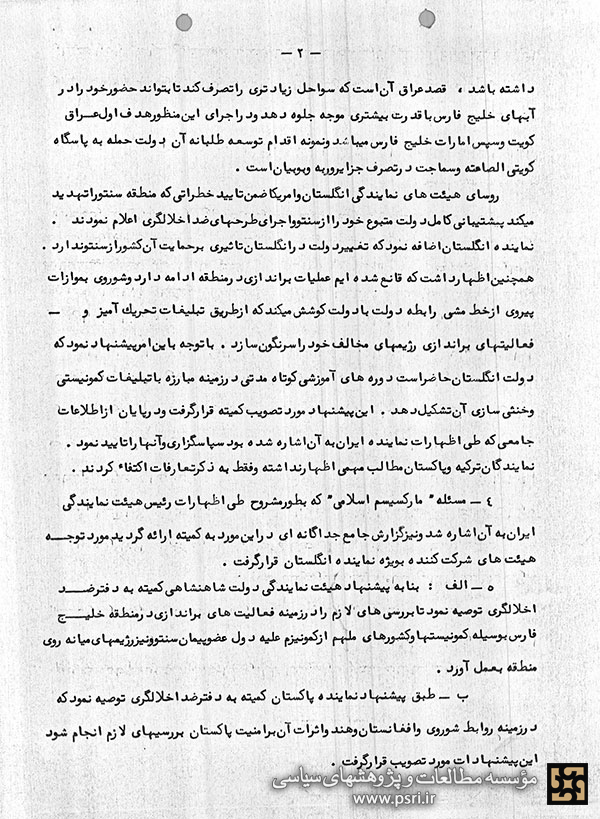 — ۲ —
داشته باشد ، قصد عراق آن است که سواحل زیادتری را تصرف کند تا بتواند حضور خود را در
آبهای خلیج فارس با قدرت بیشتری موجه جلوه دهد و در اجرای این منظور هدف اول عراق
کویت و سپس امارات خلیج فارس میباشد و نمونه اقدام توسعه طلبانه آن دولت حمله به پاسگاه
کویتی الصامته و سماجت در تصرف جزایر وربه و بوبیان است .
روسای هیئت های نمایندگی انگلستان و امریکا ضمن تایید خطراتی که منطقه سنتو را تهدید
میکند پشتیبانی کامل دولت متبوع خود را از سنتو و اجرای طرحهای ضد اخلالگری اعلام نمودند .
نماینده انگلستان اضافه نمود که تغییر دولت در انگلستان تاثیری بر حمایت آن کشور از سنتو ندارد .
همچنین اظهار داشت که قانع شده ایم عملیات براندازی در منطقه ادامه دارد و شوروی بموازات
پیروی از خط مشی رابطه دولت با دولت کوشش میکند که از طریق تبلیغات تحریک آمیز و —
فعالیتهای براندازی رژیمهای مخالف خود را سرنگون سازد . با توجه باین امر پیشنهاد نمود که
دولت انگلستان حاضر است دوره های آموزشی کوتاه مدتی در زمینه مبارزه با تبلیغات کمونیستی
و خنثی سازی آن تشکیل دهد . این پیشنهاد مورد تصویب کمیته قرار گرفت و در پایان از اطلاعات
جامعی که طی اظهارات نماینده ایران به آن اشاره شده بود سپاسگزاری و آنها را تایید نمود .
نمایندگان ترکیه و پاکستان مطالب مهمی اظهار نداشته و فقط به ذکر تعارفات اکتفاء کردند .
٤ — مسئله " مارکسیسم اسلامی " که بطور مشروح طی اظهارات رئیس هیئت نمایندگی
ایران به آن اشاره شد و نیز گزارش جامع جداگانه ای در این مورد به کمیته ارائه گردید مورد توجه
هیئت های شرکت کننده بویژه نماینده انگلستان قرار گرفت .
٥ — الف : بنا به پیشنهاد هیئت نمایندگی دولت شاهنشاهی کمیته به دفتر ضد
اخلالگری توصیه نمود تا بررسی های لازم را در زمینه فعالیت های براندازی در منطقه خلیج
فارس بوسیله کمونیستها و کشورهای ملهم از کمونیزم علیه دول عضو پیمان سنتو و نیز رژیمهای میانه روی
منطقه بعمل آورد .
ب — طبق پیشنهاد نماینده پاکستان کمیته به دفتر ضد اخلالگری توصیه نمود که
در زمینه روابط شوروی و افغانستان و هند و اثرات آن بر امنیت پاکستان بررسیهای لازم انجام شود
این پیشنهادات مورد تصویب قرار گرفت .
مؤسسه مطالعات و پژوهشهای سیاسی
www.psri.ir